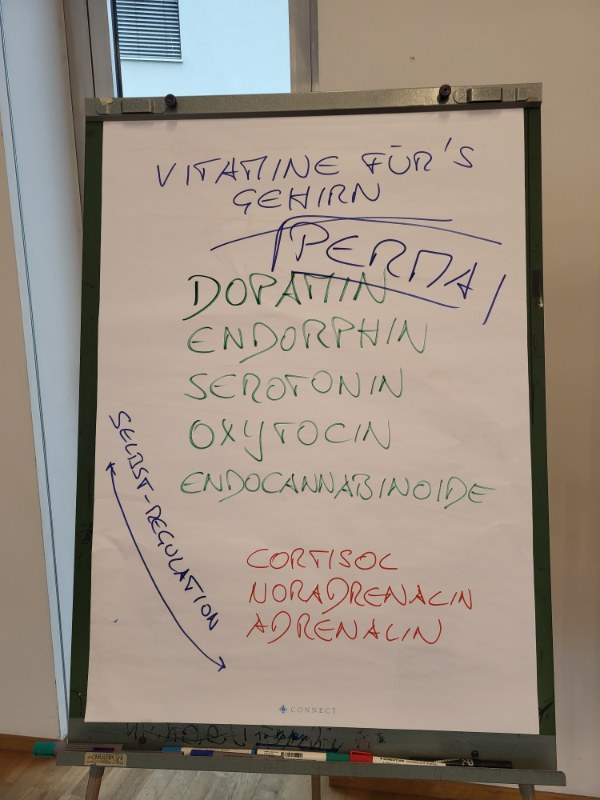 VITAMINE FÜR'S
GEHIRN
PERMA
DOPAMIN
ENDORPHIN
SEROTONIN
OXYTOCIN
ENDOCANNABINOIDE
SELBST-REGULATION
CORTISOL
NORADRENALIN
ADRENALIN
CONNECT